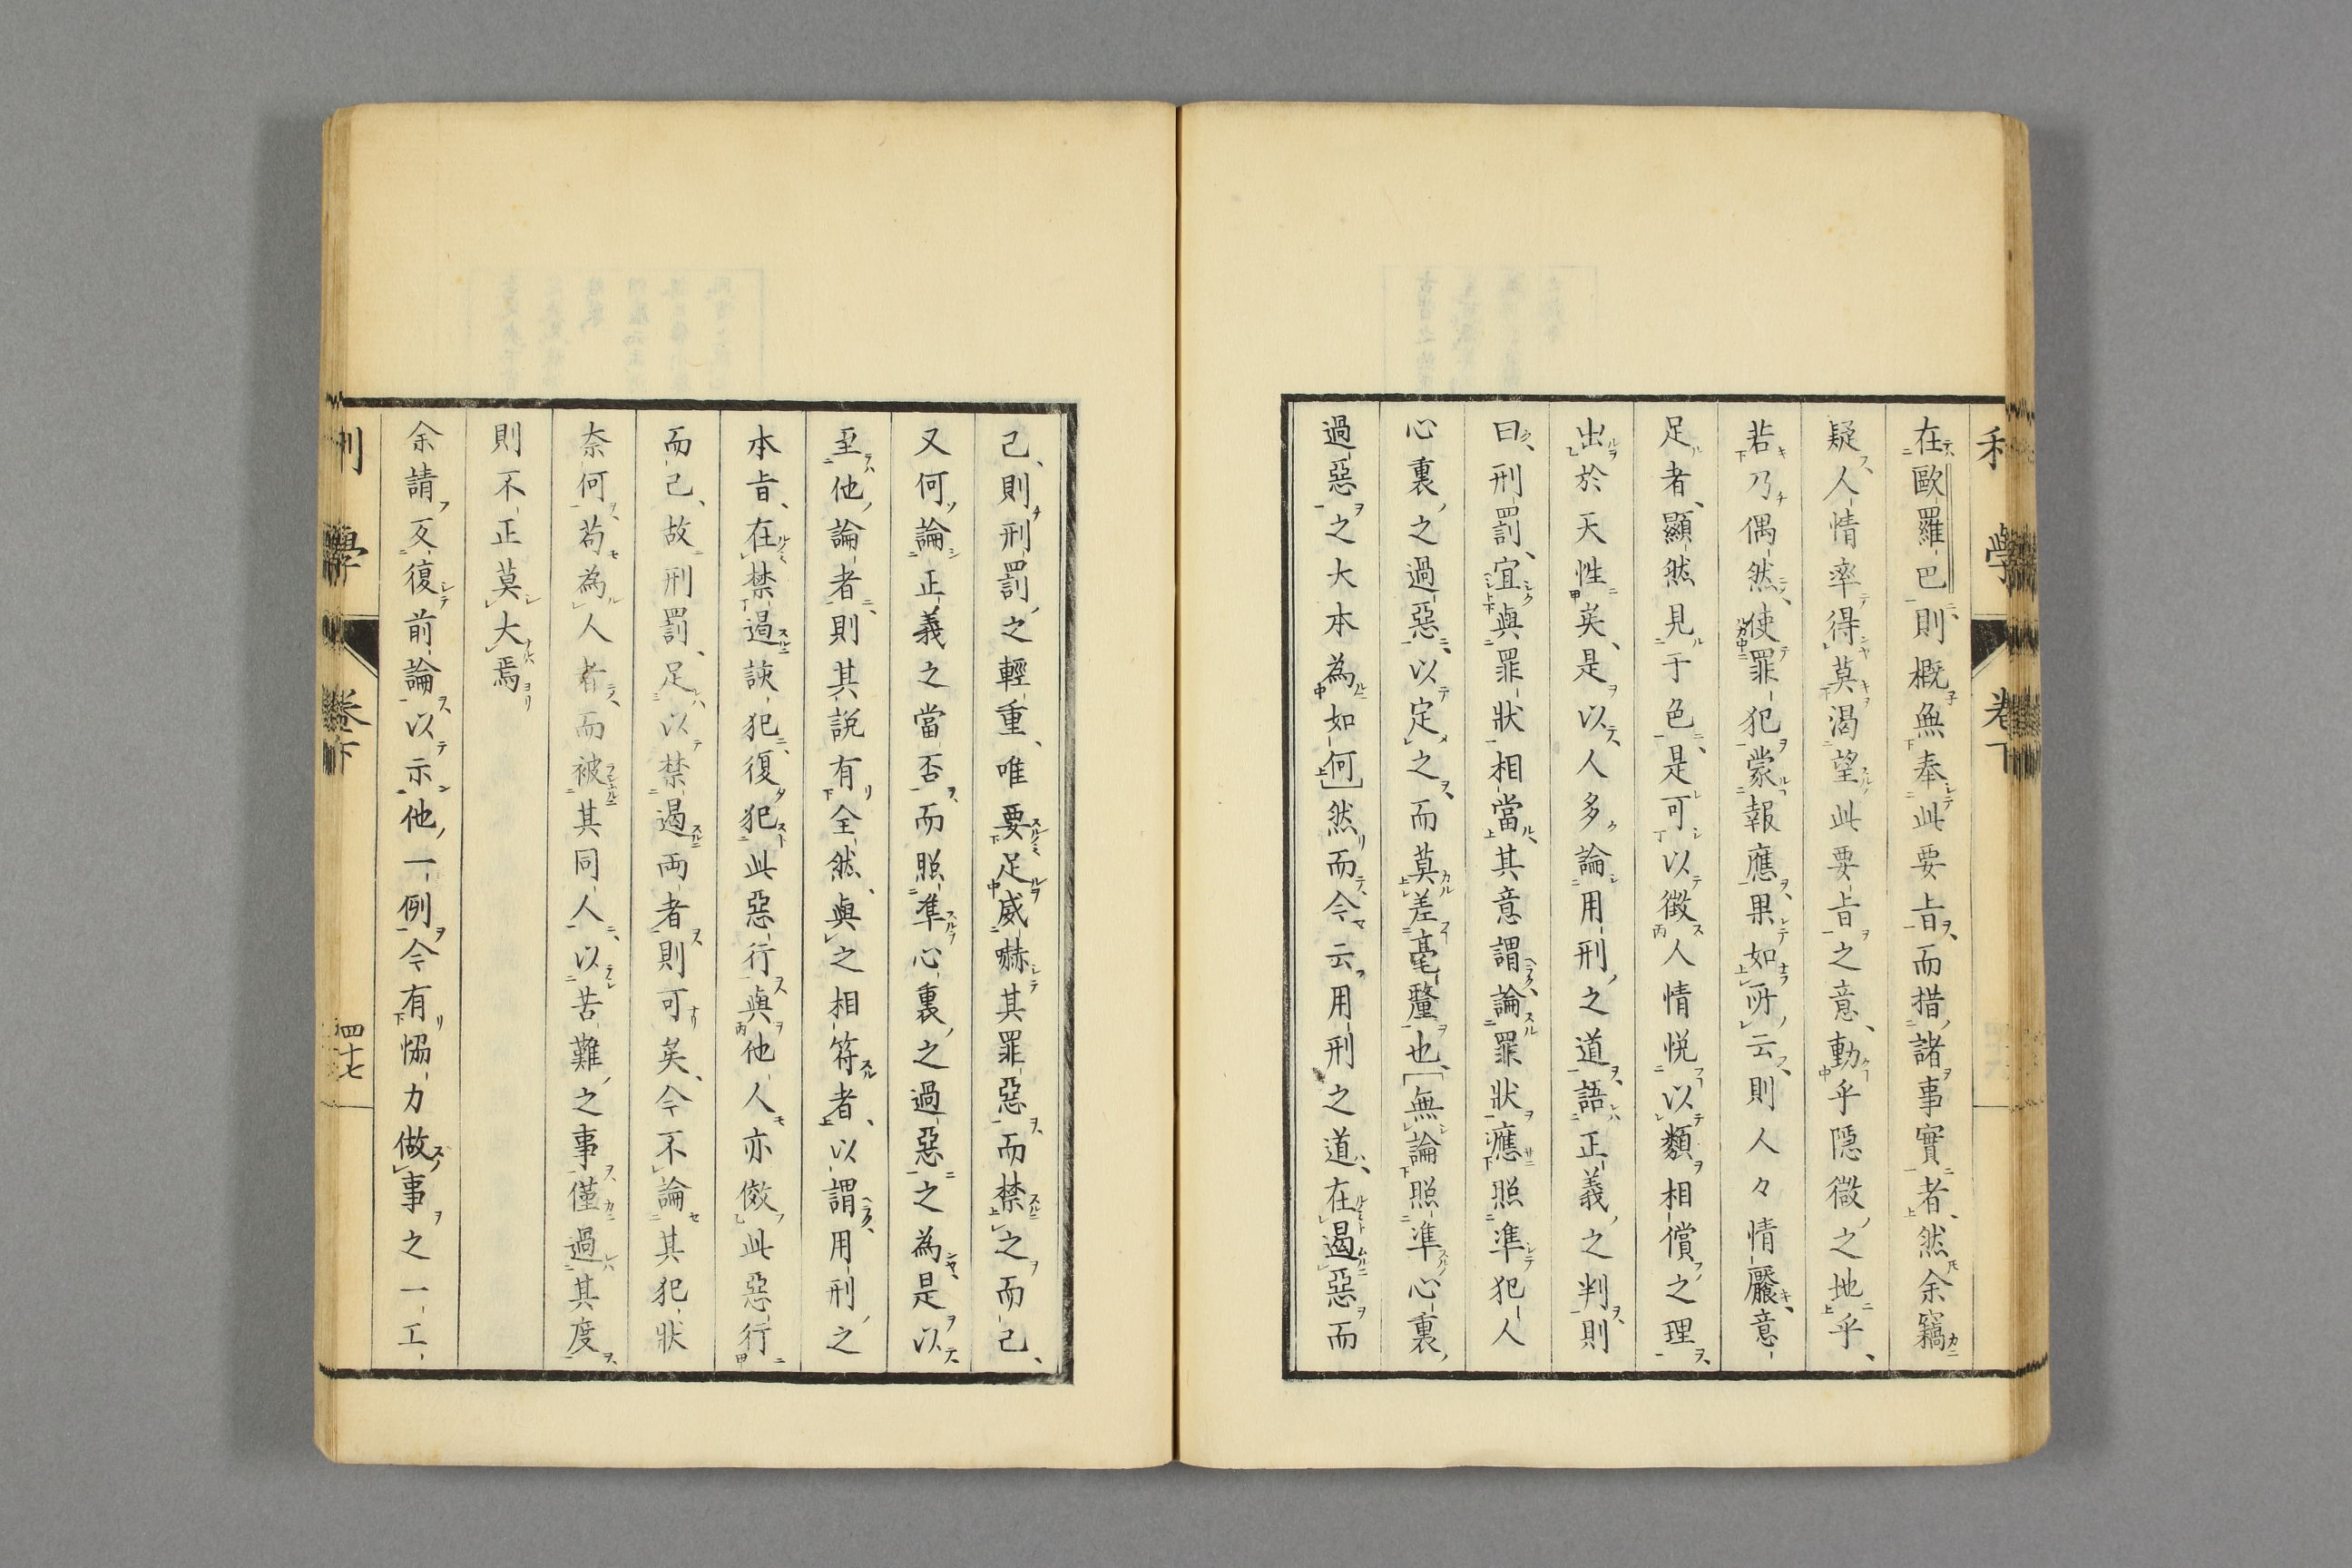 在歐羅巴則概無奉此要旨而措諸事實者然余竊
疑人情率得莫渴望此要旨之意動乎隱微之地乎
若乃偶然使罪犯蒙報應果如所云則人々情厭意
足者顯然見于色是可以徵人情悦以類相償之理
出於天性矣是以人多論用刑之道語正義之判則
曰刑罰宜與罪狀相當其意謂論罪狀應照準犯人
心裏之過惡以定之而莫差毫釐也[無論照準心裏
過惡之大本為如何]然而今云用刑之道在遏惡而
己則刑罰之輕重唯要足威嚇其罪惡而禁之而己
又何論正義之當否而照準心裏之過惡之為是以
至他論者則其說有全然與之相符者以謂用刑之
本旨在禁遏誤犯復犯此惡行與他人亦倣此惡行
而己故刑罰足以禁遏両者則可矣今不論其犯狀
奈何苟為人者而被其同人以苦難之事僅過其度
則不正莫大焉
余請反復前論以示他一例今有協力做事之一工
學
卷下
四十七